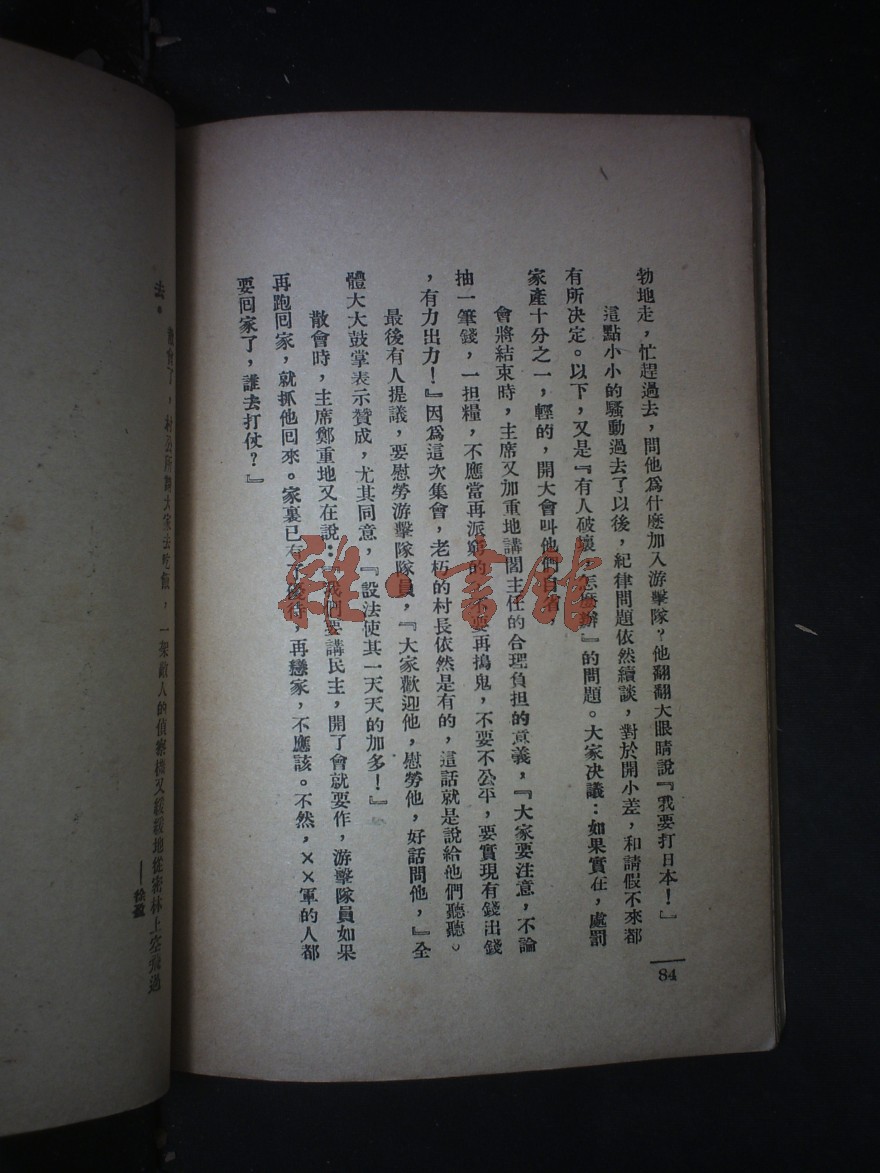 勃地走，忙趕過去，問他爲什麽加入游擊隊？他翻翻大眼睛說『我要打日本！』
這點小小的騷動過去了以後，紀律問題依然續談，對於開小差，和請假不來都
有所决定。以下，又是『有人破壞，怎麽辦』的問題。大家决議：如果實在，處罰
家產十分之一，輕的，開大會叫他們自省，
會將結束時，主席又加重地講閻主任的合理負担的意義，『大家要注意，不論
抽一筆錢，一担糧，不應當再派窮的，不要再搗鬼，不要不公平，要實現有錢出錢
，有力出力！』因爲這次集會，老柘的村長依然是有的，這話就是說給他們聽聽。
最後有人提議，要慰勞游擊隊隊員，『大家歡迎他，慰勞他，好話問他，』全
體大大鼓掌表示贊成，尤其同意，『設法使其一天天的加多！』
散會時，主席鄭重地又在說：『我們要講民主，開了會就要作，游擊隊員如果
再跑回家，就抓他回來。家裏已有了優待，再戀家，不應該。不然，××軍的人都
要回家了，誰去打仗？』
84
散會了，村公所請大家去吃飯，一架敵人的偵察機又緩緩地從密林上空飛過
去。
——徐盈
雜·書館